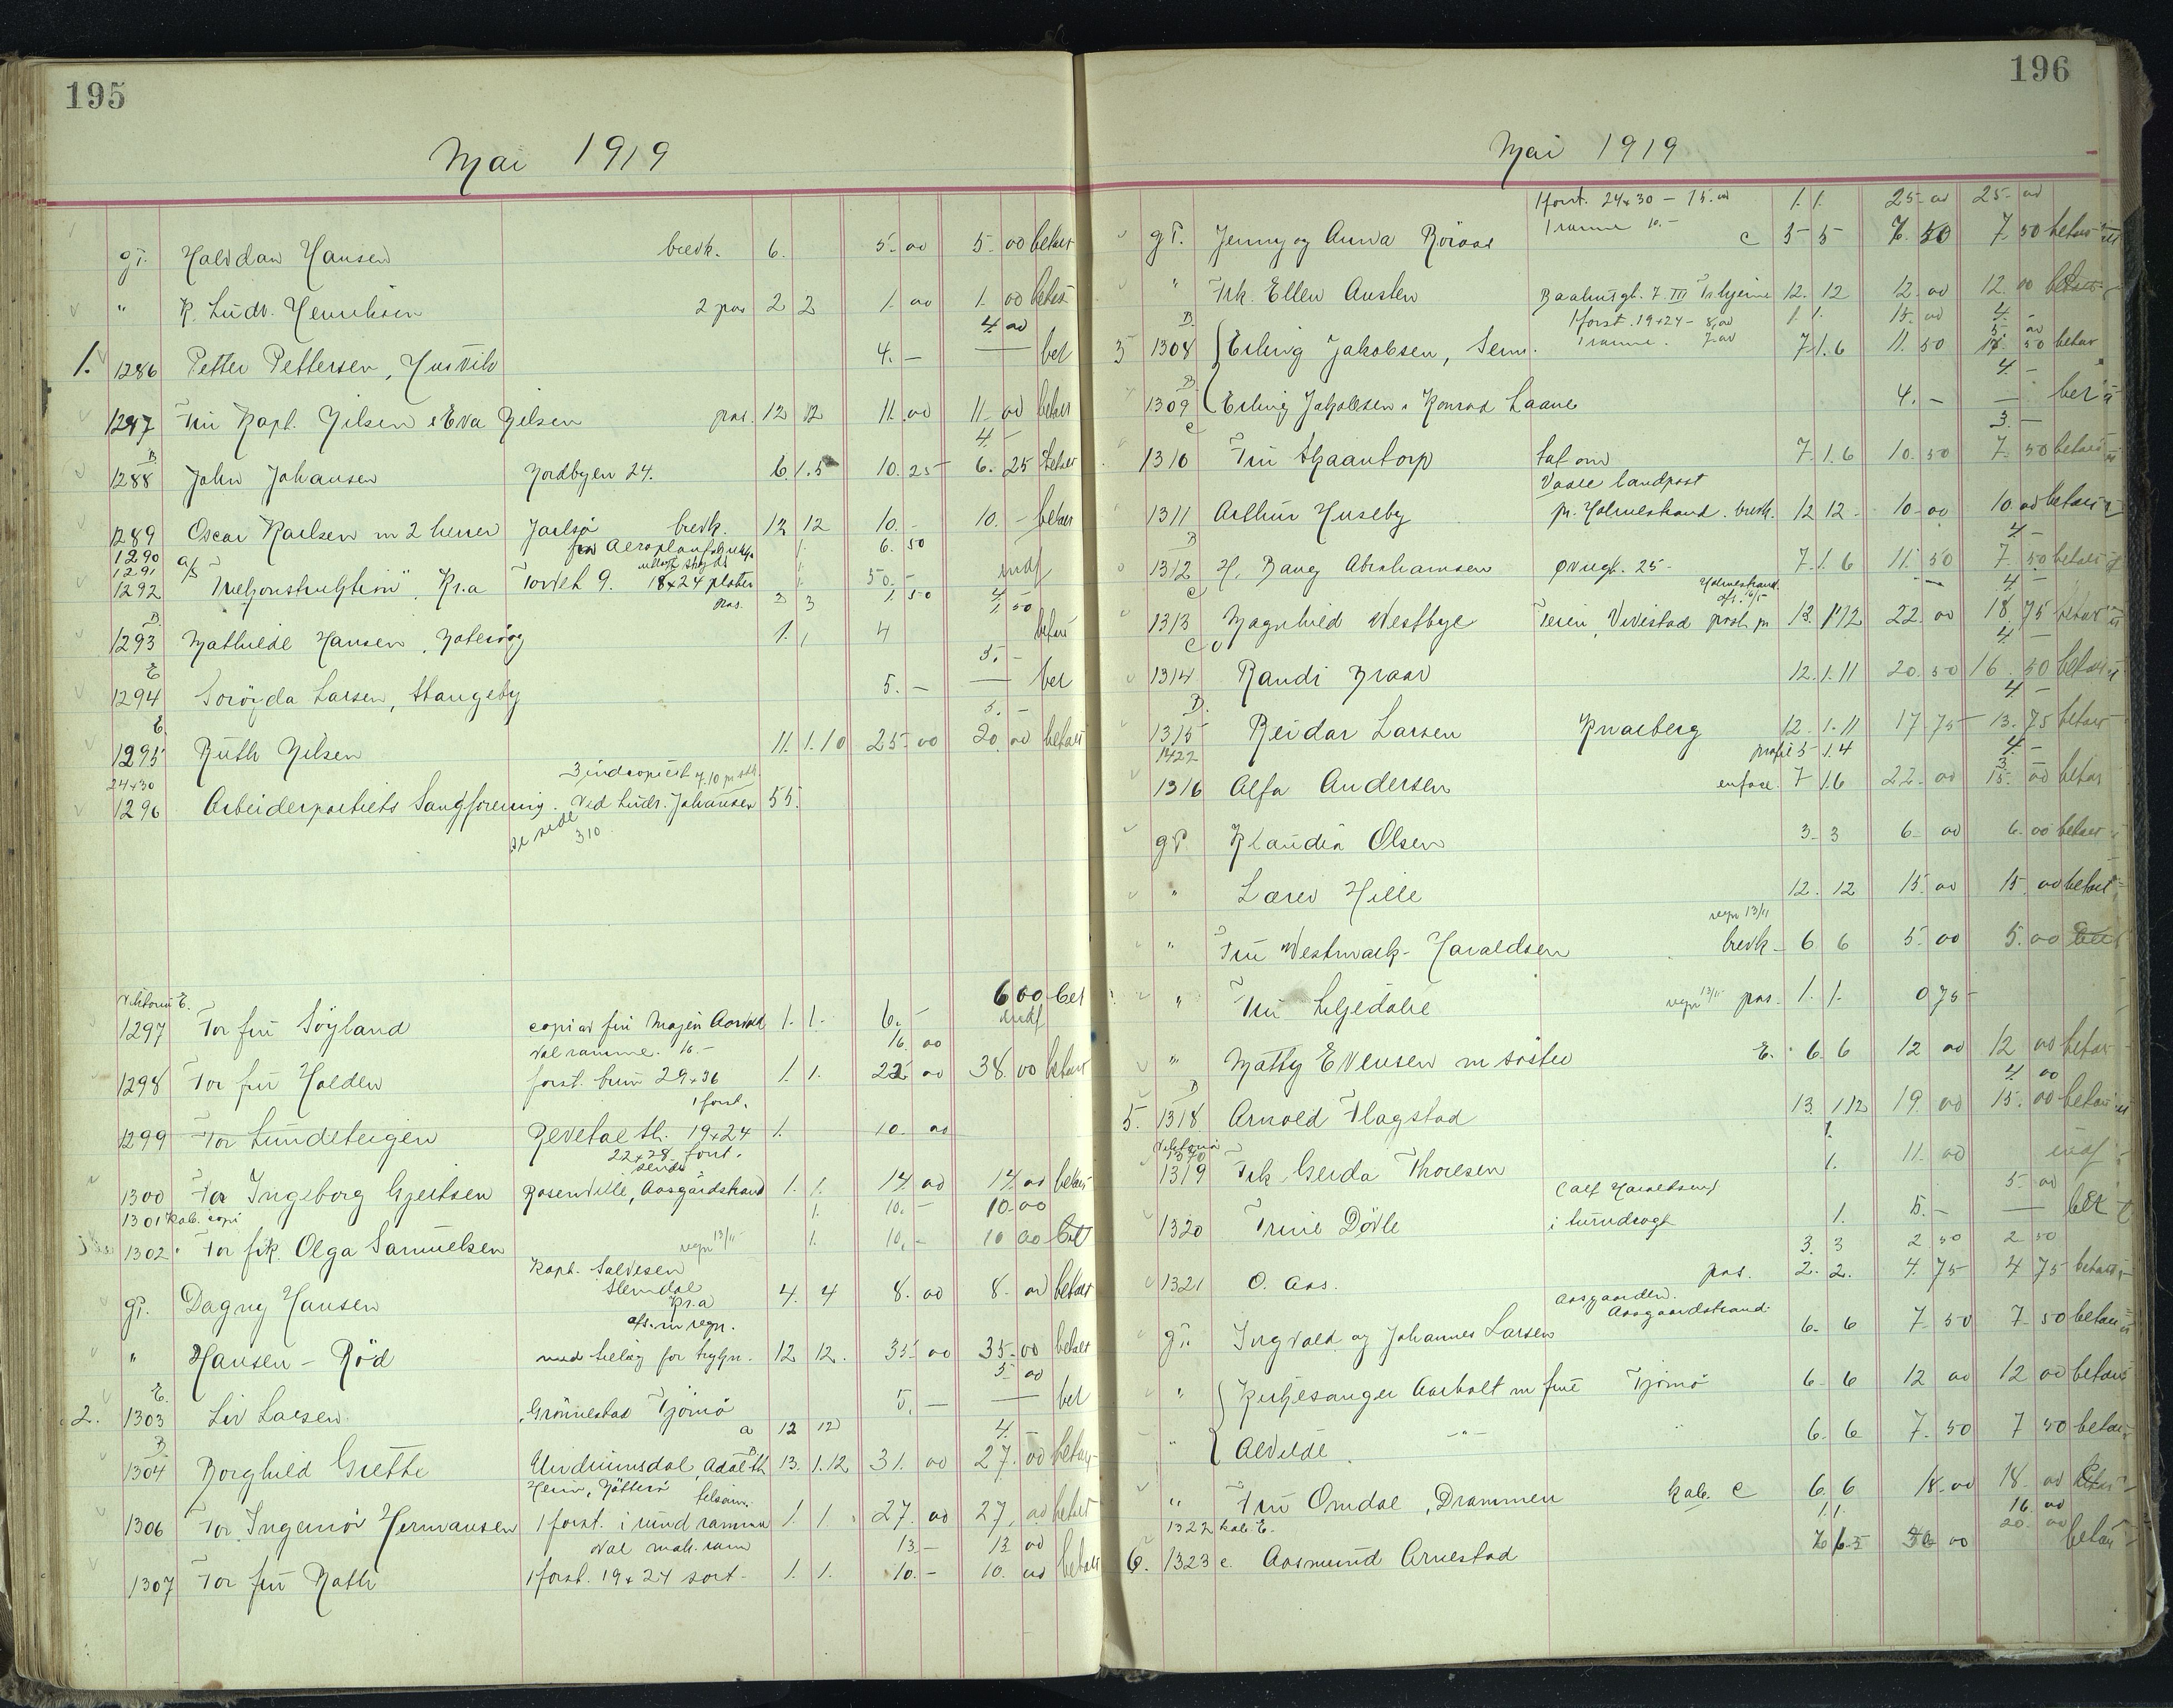 195
Mai 1919
gT. Halvdan Hansen brevk. 6. 5.00 5.00 betalt
" K. Ludv. Henriksen 2 pos 2 2 1.00 1.00 betalt
4.00
1. 1286 Petter Pettersen, Husvik 4.– — bet
1287 Fru Kapt. Nilsen & Eva Nilsen pos. 12 12 11.00 11.00 betalt
B. 4.–
1288 John Johansen Nordbyen 24. 6.1.5 10.25 6.25 betalt
1289 Oscar Karlsen m 2 herrer Jarlsø brevk. 12 12 10.– 10.– betalt
1290 1. 6.50
1291 a/s 1.
1292 Kr.a Torvet 9. 18x24 plater 1. 50.–
pos. 3 3 1.50 1.50
B.
1293 Mathilde Hansen, 1. 1 4 betalt
E 5.–
1294 Larsen, Stangeby 5.– — bet
E. 5.–
1295 Ruth Nilsen 11.1.10 25.00 20.00 betalt
24x30
1296 Arbeiderpartiets Sangforening. ved Ludv. Johansen 55.
se side 310
Viktoria E. 600 bet
1297 For fru Söyland copi av fru Majer 1. 1. 6.–
ramme. 16.– 16.00
1298 For fru Holden forst. brun 29x36 1. 1. 22.00 38.00 betalt
1 forst.
1299 For Lundeteigen Revetal st. 19x24 1. 10.00
22x28 forst.
sendes
1300 For Ingeborg Gjertsen Rosenvilde, Aasgårdstrand 1. 1. 14.00 14.00 betalt
1301 kab. copi 1. 10.– 10.00
1302 For frk. Olga Samuelsen regn 13/11 1. 10.– 10.00 bet
Kapt. Salvesen
Slemdal
gT. Dagny Hansen Kr.a 4. 4 8.00 8.00 betalt
afs. m regn.
" Hansen – Röd med tillæg for 12 12. 35.00 35.00 betalt
E. 5.00
2. 1303 Liv Larsen Grönnestad Tjömö 5.– — bet
B a 12 12 4.–
1304 Borghild Grette Undrumsdal, Adal st. 13.1.12 31.00 27.00 betalt
1306 For Ingemör Hermansen 1 forst. i rund ramme 1. 1. 27.00 27.00 betalt
oval mah. ram 13.– 13.00
1307 For fru Rath 1 forst. 19x24 sort. 1. 1. 10.– 10.00 betalt
196
Mai 1919
1 forst. 24x30 – 15.00 1. 1. 25.00 25.00
gT. Jenny og Anna Röraas 1 ramme 10.– c 5 5 7.50 7.50 betalt
" Frk. Ellen Austen 7 III 12. 12 12.00 12.00 betalt
B. 1 forst. 19x24 – 8,00 1. 1. 15.00 4.–
3 1308 Erling Jakobsen, Sem. 1 ramme. 7.00 7.1.6 11.50 50 betalt
B. 4.–
1309 Erling Jakobsen & Konrad Laane 4.– — bet
c 3.–
1310 Fru Skaantorp tat om 7.1.6 10.50 7.50 betalt
Vaale landpost
1311 Arthur Huseby pr. Holmestrand. brevk. 12 12 10.00 10.00 betalt
B 4.–
1312 H. Bang Abrahamsen Øvregt. 25 7.1.6 11.50 7.50 betalt
c Holmestrand 4.–
1313 Magnhild Westbye post pr 13.1.12 22.00 18.75 betalt
c 4.–
1314 Randi Braar 12.1.11 20.50 16.50 betalt
B. 4.–
1315 Reidar Larsen Knarberg 12.1.11 17.75 13.75 betalt
1422 profil 5 1.4 4.–
1316 Alfa Andersen enface 7 1.6 22.00 15.00 betalt
gT. Klaudia Olsen 3. 3 6.00 6.00 betalt
" Lærer Hille 12. 12 15.00 15.00 betalt
regn 13/11
" Fru Westmark-Haraldsen brevk. 6 6 5.00 5.00
" Fru Liljedahl regn 13/11 pos. 1. 1. 0 75
" Matty Evensen m söster E. 6. 6 12 00 12 00 betalt
B 4.00
5. 1318 Arnold Flagstad 13. 1.12 19.00 15.00 betalt
Viktoria 1.
1319 Frk. Gerda Thoresen 1. 11.00
5.00
1320 Trine Dövle i turndragt 1. 5.– — bet
3. 3 2.50 2.50
1321 O. Aas. pos. 2. 2. 4.75 4.75 betalt
Aasgaarden.
Aasgaardstrand.
gT. Ingvald og Johannes Larsen 6. 6 7.50 7.50 betalt
" Kirkesanger Aarholt m frue Tjömö 6. 6 12 00 12 00 betalt
" Alvilde –"– 6. 6 7.50 7.50 betalt
" Fru Omdal, Drammen kab. c 6. 6 18.00 18.00
1322 kab. E. 1.1. 16.00
20.00
6. 1323 c. Aasmund Arnestad 00 betalt